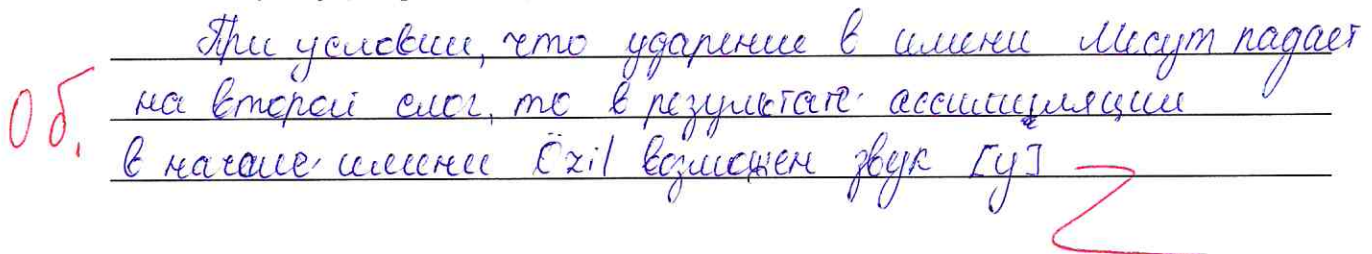 При условии, что ударение в имени Месут падает
0 б. на второй слог, то в результате ассимиляции
в начале имени Özil возможен звук [у]